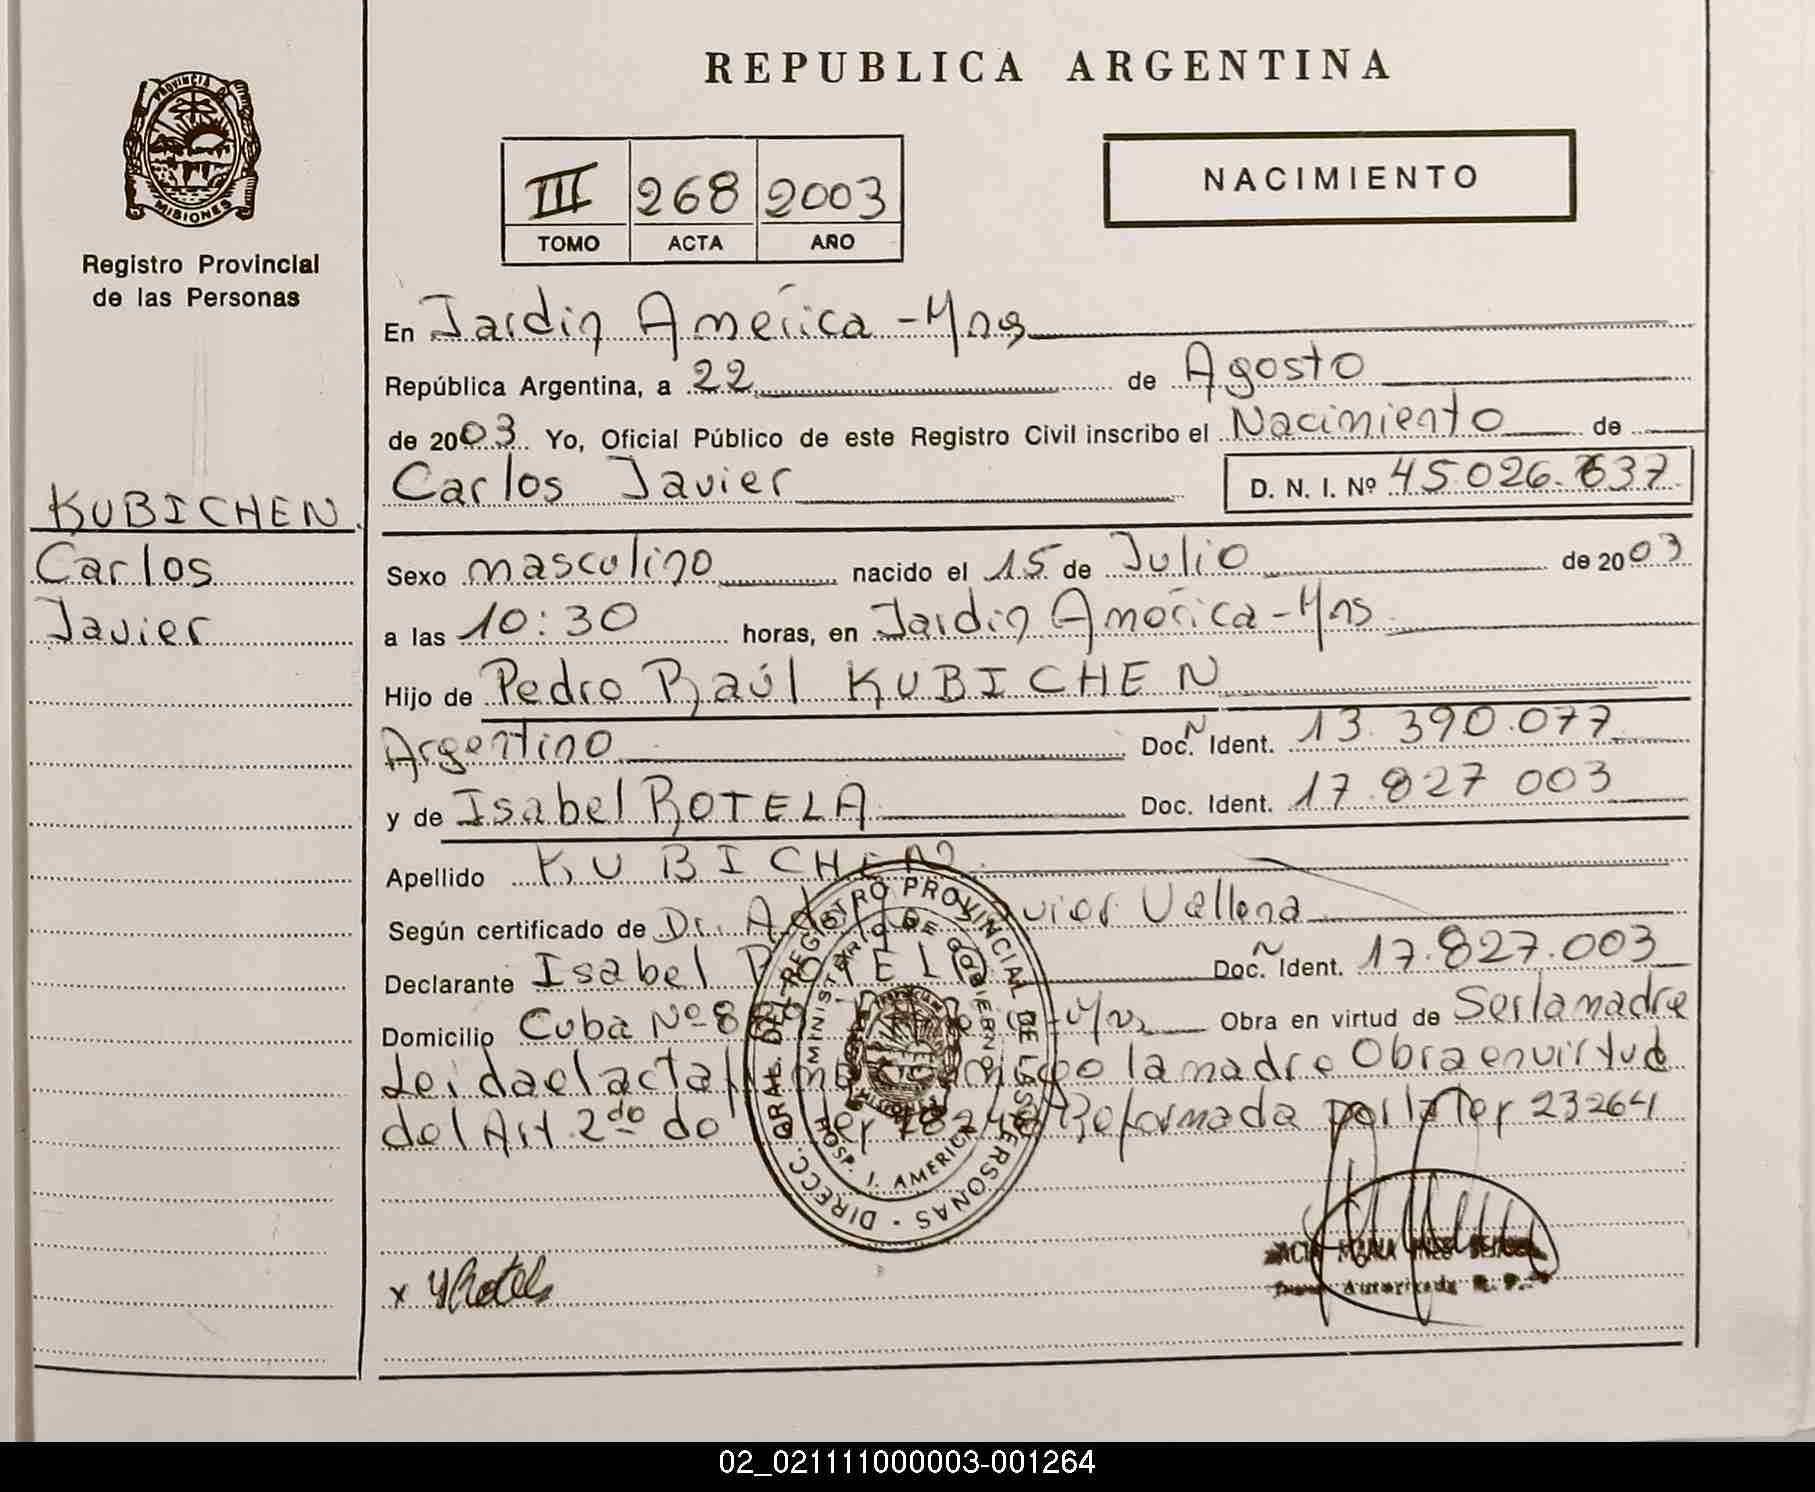 REPUBLICA ARGENTINA
PROVINCIA D
MISIONES
Registro Provincial
de las Personas
III 268 2003
TOMO ACTA AÑO
NACIMIENTO
En Jardin América - Mns
República Argentina, a 22 de Agosto
de 2003 Yo, Oficial Público de este Registro Civil inscribo el Nacimiento de
Carlos Javier D. N. I. Nº 45.026.637
KUBICHEN
Carlos
Javier
Sexo masculino nacido el 15 de Julio de 2003
a las 10:30 horas, en Jardin América - Mns
Hijo de Pedro Raúl KUBICHEN
Argentino Doc. Ident. 13.390.077
y de Isabel ROTELA Doc. Ident. 17.827 003
Apellido KUBICHEN
Según certificado de Dr. Vallena
Declarante Isabel ROTELA Doc. Ident. 17.827.003
Domicilio Cuba Nº 8 Obra en virtud de Ser la madre
Leida el acta la madre Obra en virtud
del Art 2do de ley Reformada por la ley 23264
DIRECC. GRAL. DEL REGISTRO PROVINCIAL DE LAS PERSONAS
MINISTERIO DE GOBIERNO
HOSP. J. AMERICA
x YRotela
Autorizada R. P.
02_021111000003-001264